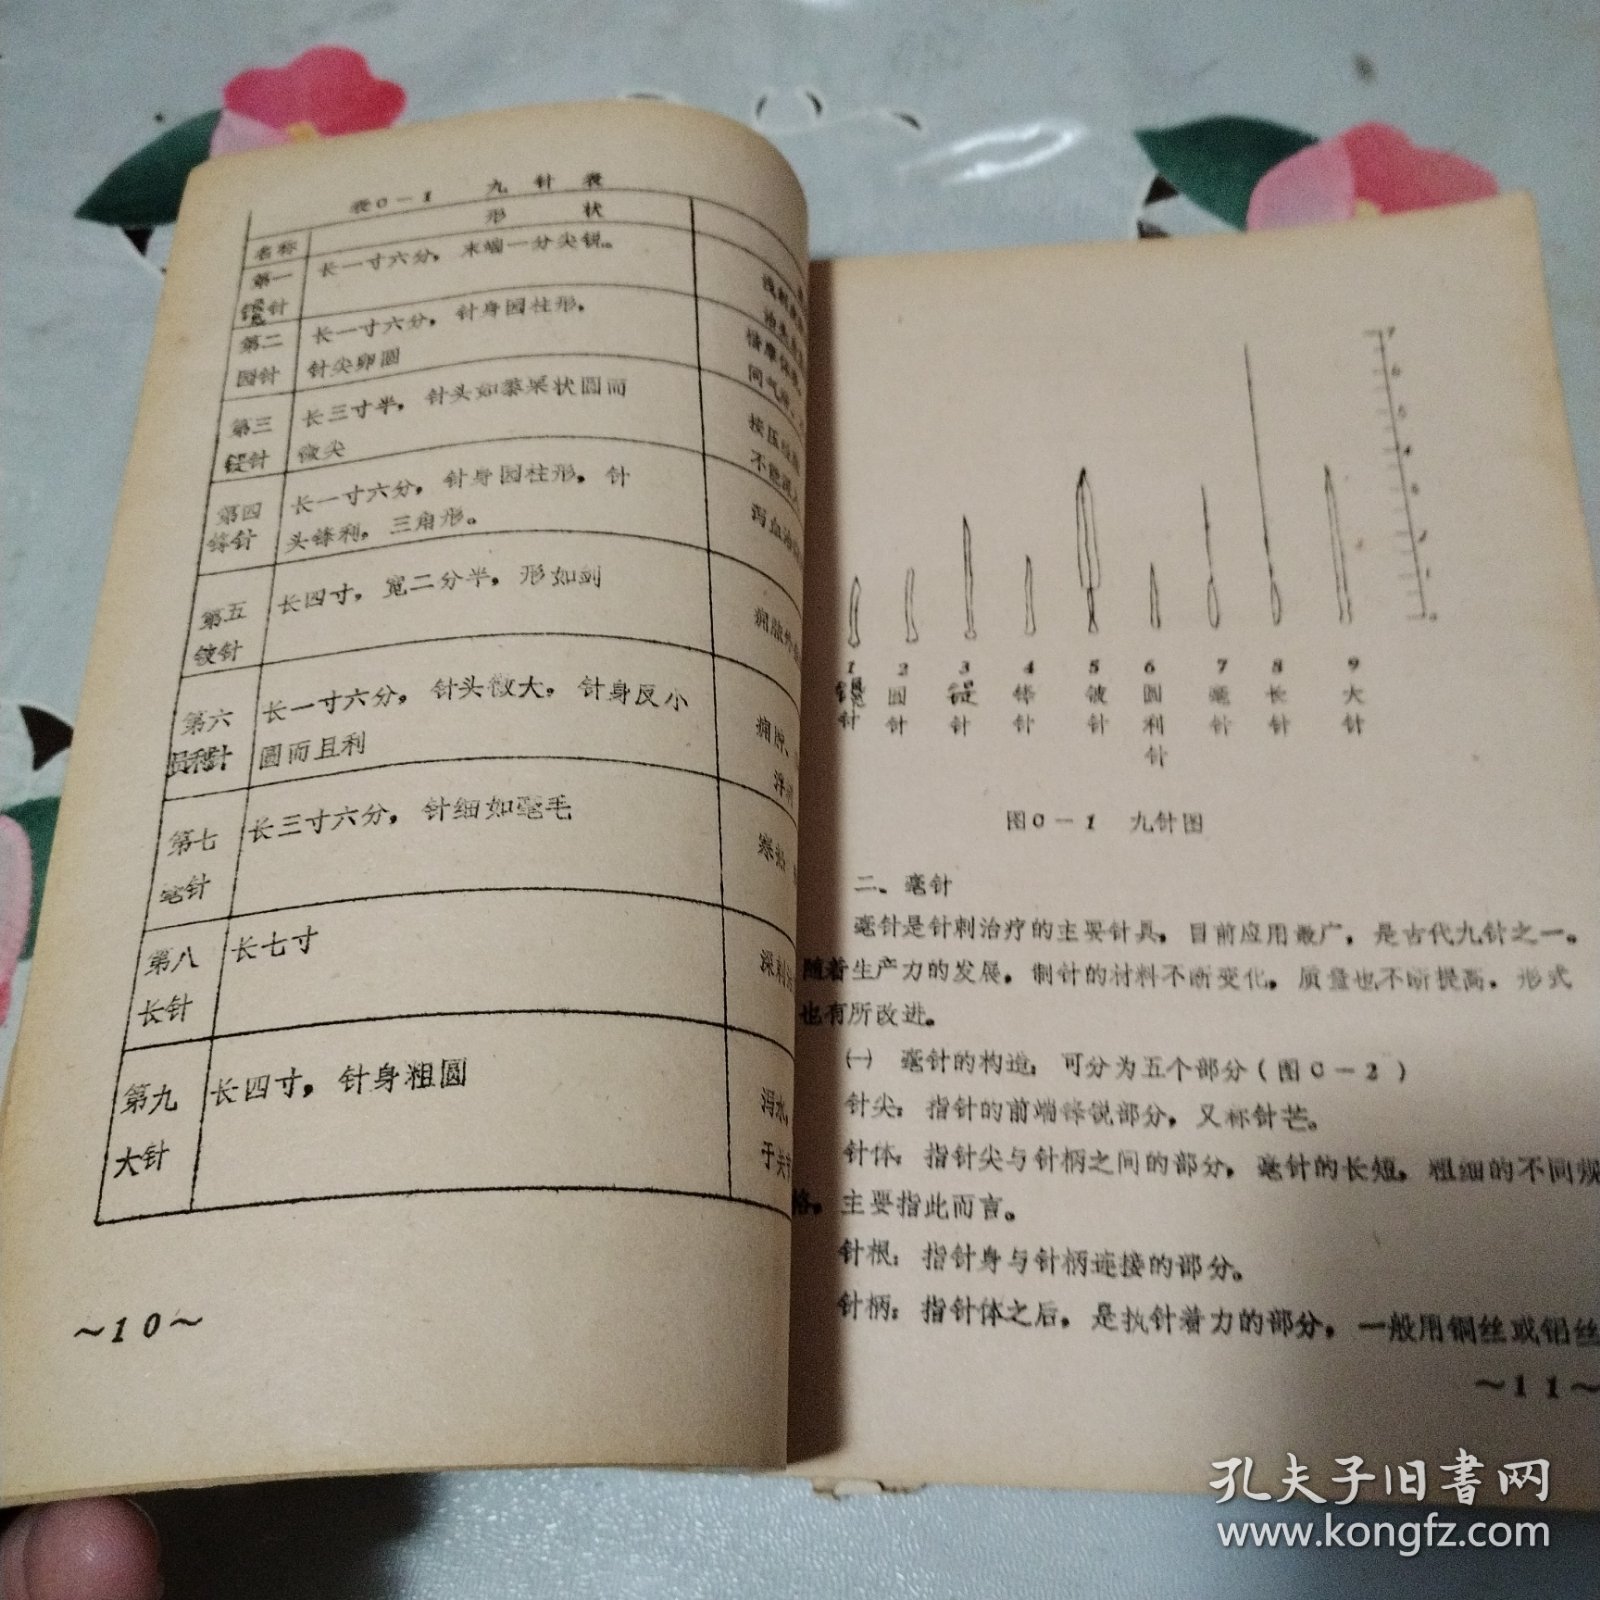 表0-1 九针表
名称 形状
第一 长一寸六分，末端一分尖锐。
镵针
第二 长一寸六分，针身园柱形，
园针 针尖卵圆
第三 长三寸半，针头如黍粟状圆而
鍉针 微尖
第四 长一寸六分，针身园柱形，针
锋针 头锋利，三角形。
泻血
第五 长四寸，宽二分半，形如剑
铍针
第六 长一寸六分，针头微大，针身反小
员利针 圆而且利
第七 长三寸六分，针细如毫毛
毫针
第八 长七寸
长针
深刺
第九 长四寸，针身粗圆
大针
泻水
～10～
7
6
5
4
3
2
1
0
1 2 3 4 5 6 7 8 9
镵针 圆针 鍉针 锋针 铍针 圆利针 毫针 长针 大针
图0-1 九针图
二、毫针
毫针是针刺治疗的主要针具，目前应用最广，是古代九针之一。
随着生产力的发展，制针的材料不断变化，质量也不断提高，形式
也有所改进。
㈠ 毫针的构造：可分为五个部分(图0-2)
针尖：指针的前端锋锐部分，又称针芒。
针体：指针尖与针柄之间的部分，毫针的长短，粗细的不同规
格，主要指此而言。
针根：指针身与针柄连接的部分。
针柄：指针体之后，是执针着力的部分，一般用铜丝或铝丝
～11～
孔夫子旧书网
www.kongfz.com